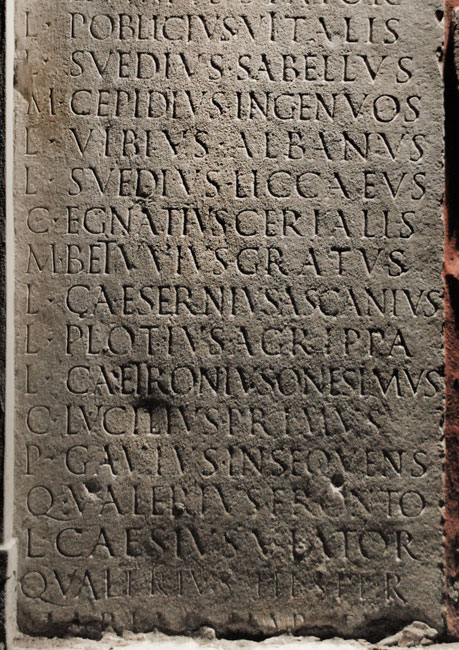 L · POBLICIVS · VITALIS
L · SVEDIVS · SABELLVS
M · CEPIDIVS · INGENVOS
L · VIBIVS · ALBANVS
L · SVEDIVS · LICCAEVS
C · EGNATIVS CERIALIS
M · BETVVIVS GRATVS
L · CAESERNIVS ASCANIVS
L · PLOTIVS AGRIPPA
L · CAEIRONIVS ONESIMVS
C · LVCILIVS PRIMVS
P · GAVIVS · INSEQVENS
Q · VALERIVS FRONTO
L · CAESIVS VIATOR
Q VALERIVS HESPER